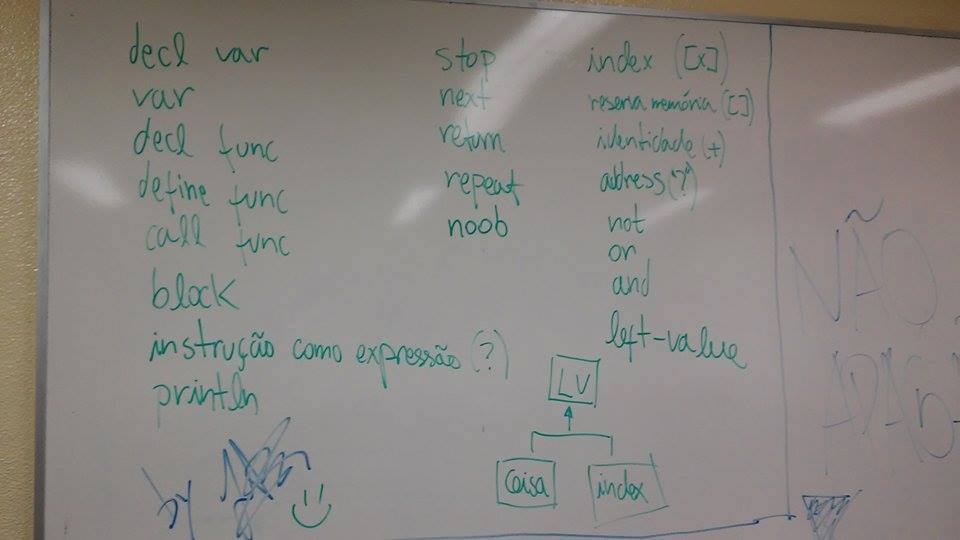 decl var
var
decl func
define func
call func
block
instrução como expressão (?)
println
by
stop
next
return
repeat
noob
index ([x])
reserva memória ([])
identidade (+)
address (?)
not
or
and
left-value
LV
Coisa
index
NÃO